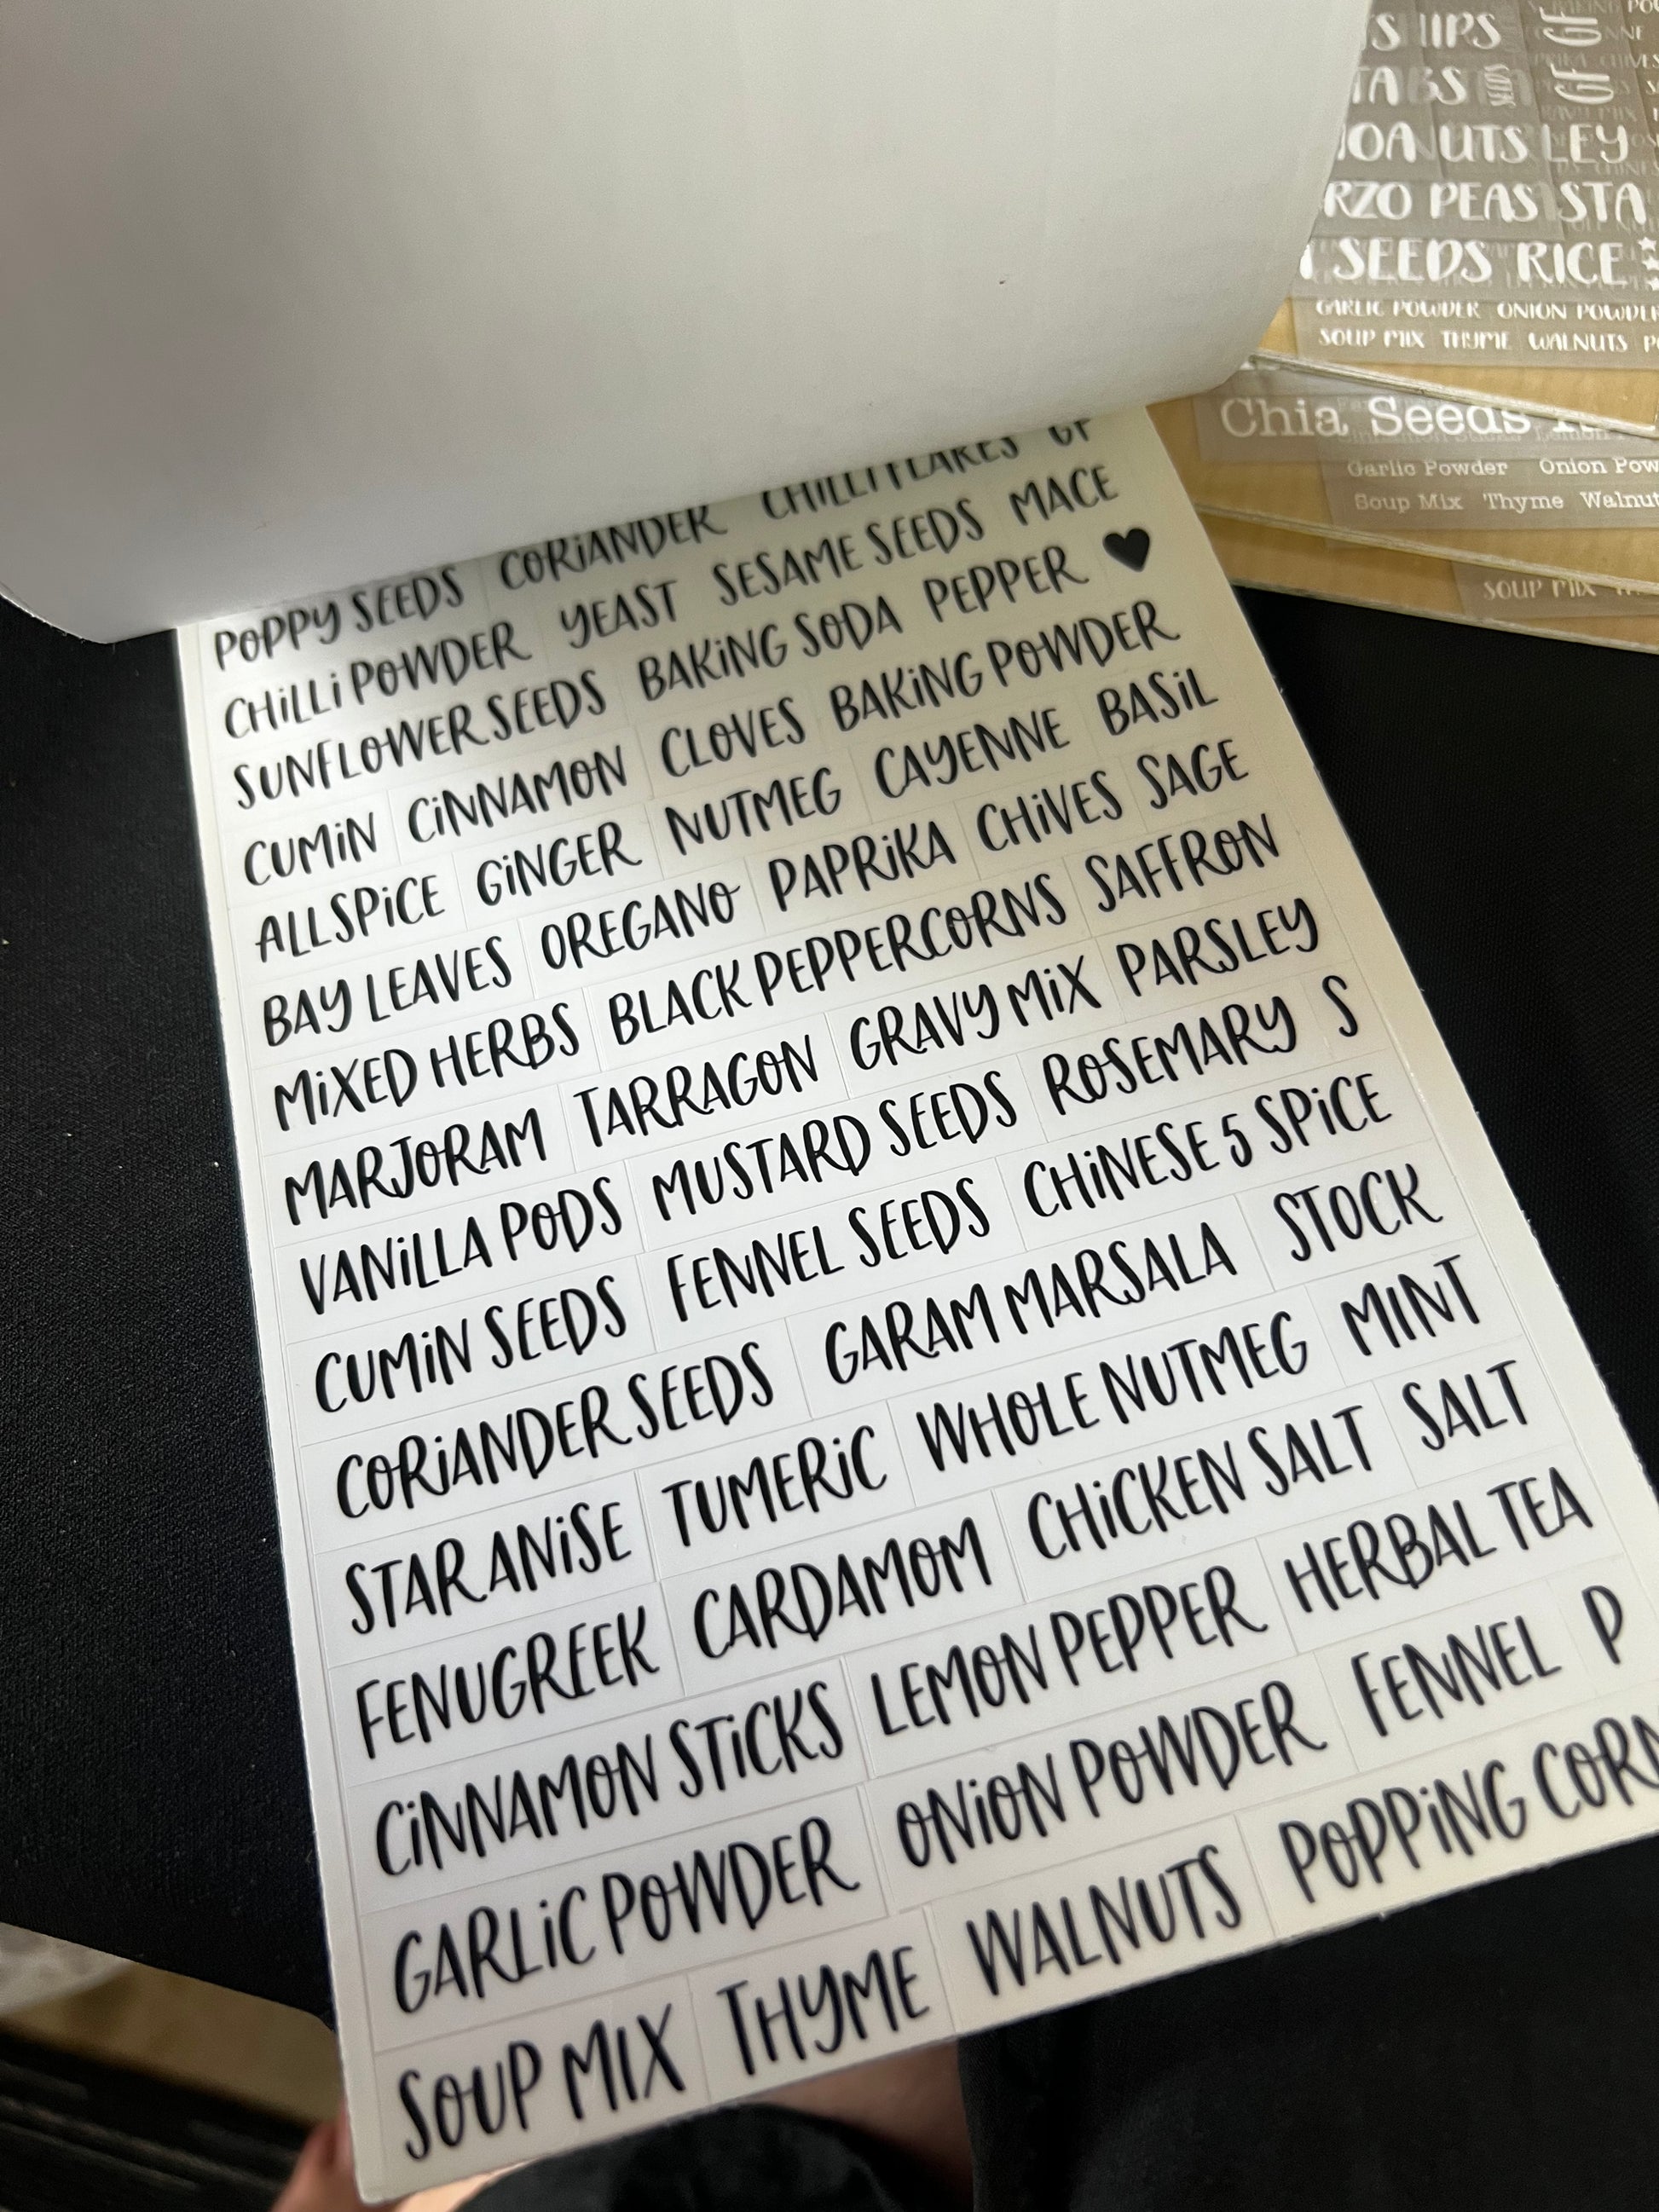 POPPY SEEDS CORIANDER CHILLI FLAKES GF
CHILLI POWDER YEAST SESAME SEEDS MACE
SUNFLOWER SEEDS BAKING SODA PEPPER
CUMIN CINNAMON CLOVES BAKING POWDER
ALLSPICE GINGER NUTMEG CAYENNE BASIL
BAY LEAVES OREGANO PAPRIKA CHIVES SAGE
MIXED HERBS BLACK PEPPERCORNS SAFFRON
MARJORAM TARRAGON GRAVY MIX PARSLEY
VANILLA PODS MUSTARD SEEDS ROSEMARY S
CUMIN SEEDS FENNEL SEEDS CHINESE 5 SPICE
CORIANDER SEEDS GARAM MARSALA STOCK
STAR ANISE TUMERIC WHOLE NUTMEG MINT
FENUGREEK CARDAMOM CHICKEN SALT SALT
CINNAMON STICKS LEMON PEPPER HERBAL TEA
GARLIC POWDER ONION POWDER FENNEL P
SOUP MIX THYME WALNUTS POPPING CORN
GF GF
UTS LEY
RZO PEAS STA
SEEDS RICE
GARLIC POWDER ONION POWDER
SOUP MIX THYME WALNUTS
Chia Seeds
Garlic Powder Onion Pow
Soup Mix Thyme Walnut
SOUP MIX